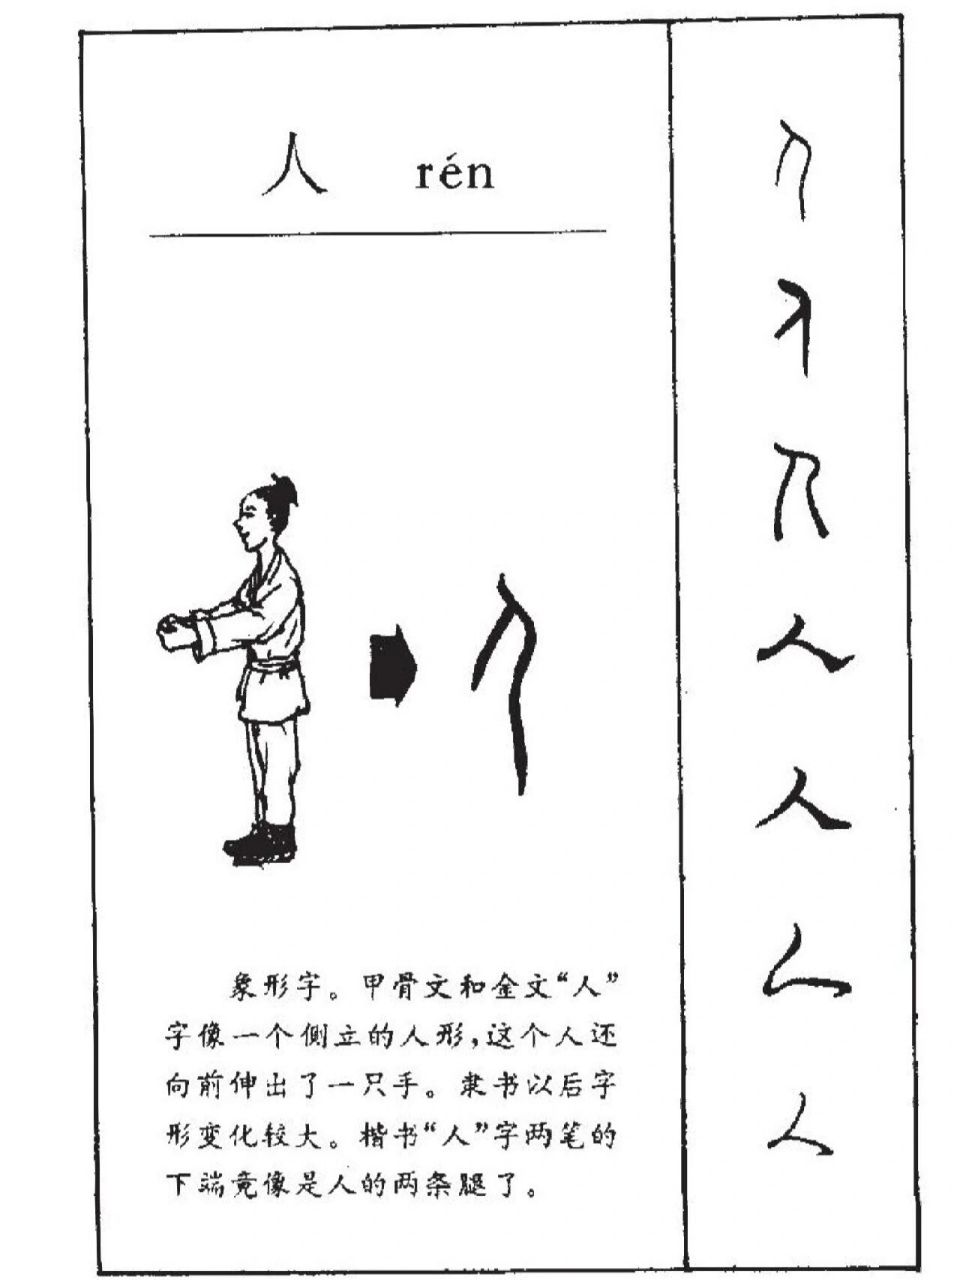 人 rén
象形字。甲骨文和金文“人”
字像一个侧立的人形,这个人还
向前伸出了一只手。隶书以后字
形变化较大。楷书“人”字两笔的
下端竟像是人的两条腿了。
人
人
人
人
人
人
人
人